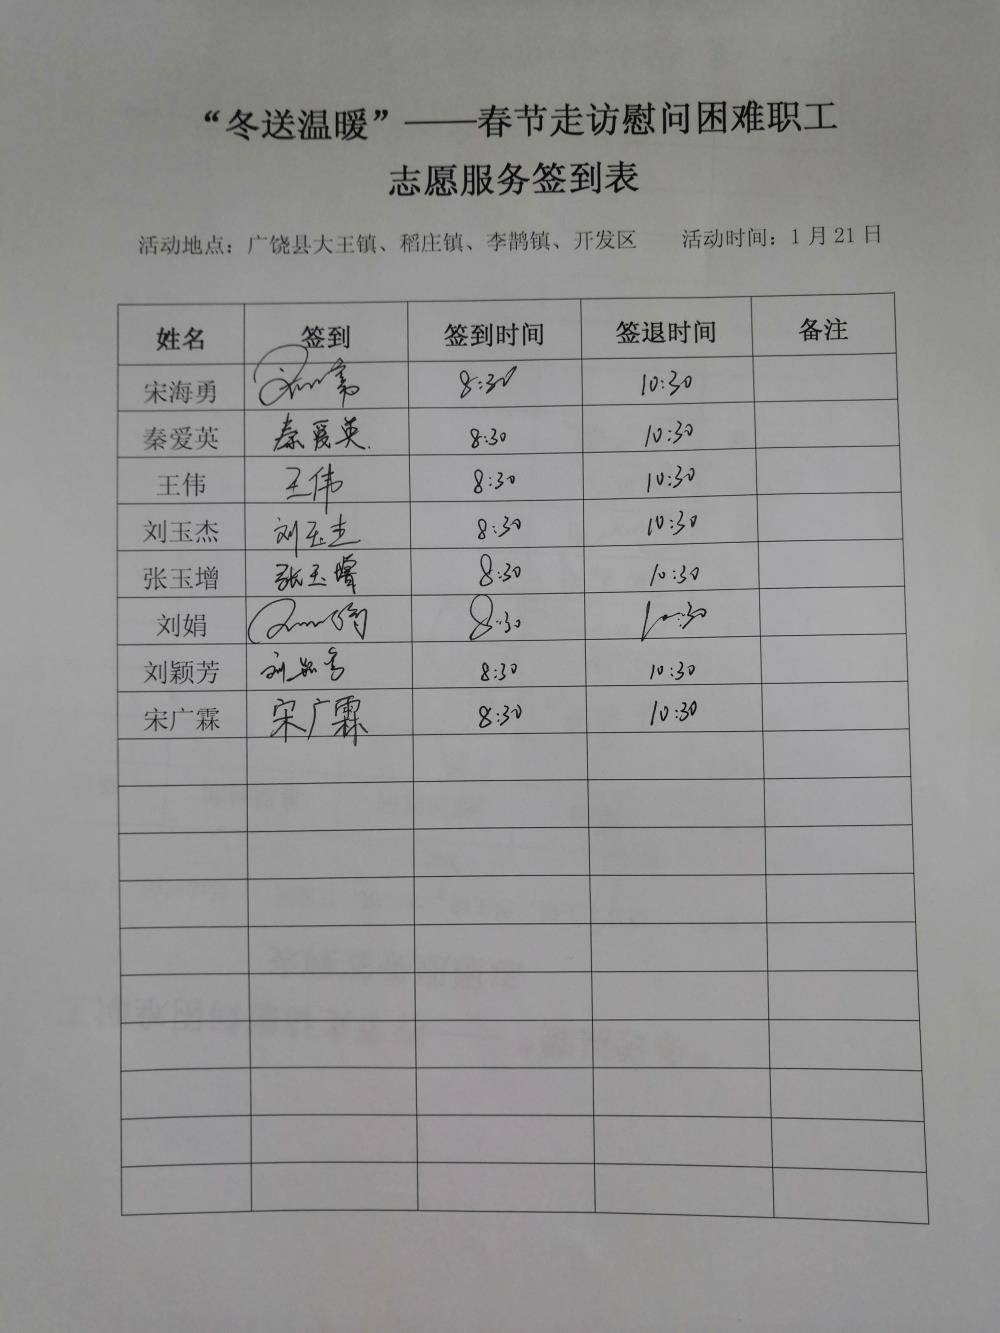 “冬送温暖”——春节走访慰问困难职工
志愿服务签到表
活动地点：广饶县大王镇、稻庄镇、李鹊镇、开发区 活动时间：1月21日
姓名 签到 签到时间 签退时间 备注
宋海勇 8:30 10:30
秦爱英 秦爱英 8:30 10:30
王伟 王伟 8:30 10:30
刘玉杰 刘玉杰 8:30 10:30
张玉增 张玉增 8:30 10:30
刘娟 8:30 10:30
刘颖芳 刘颖芳 8:30 10:30
宋广霖 宋广霖 8:30 10:30